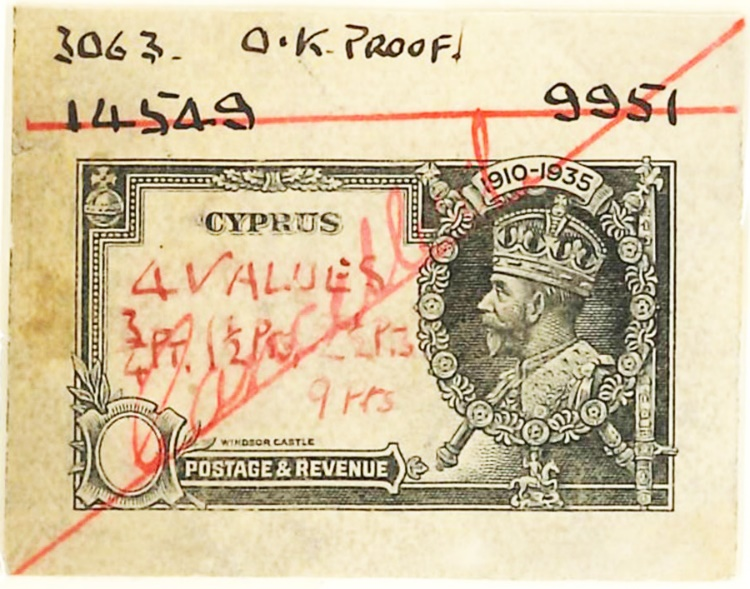 3063. O.K. PROOF!
14549 9951
1910-1935
CYPRUS
4 VALUES
3/4 PT. 1 1/2 Pts 2 1/2 Pts
9 Pts
Cancelled
WINDSOR CASTLE
POSTAGE & REVENUE